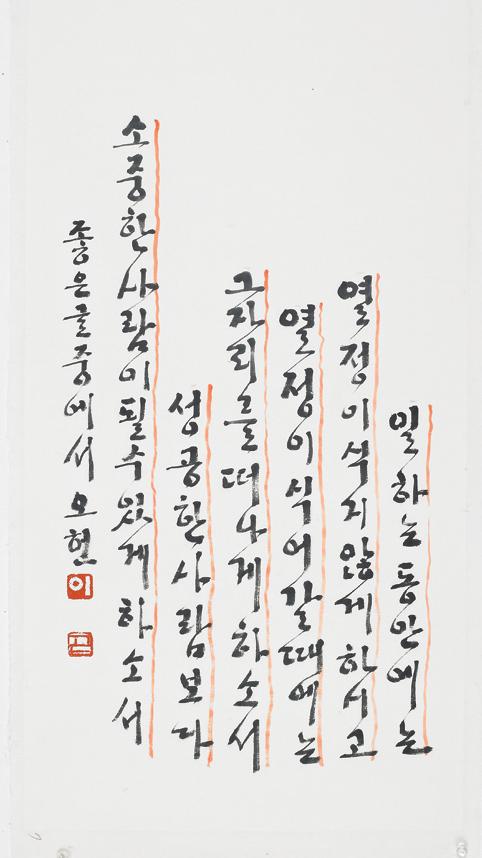 일하는 동안에는
열정이 식지 않게 하시고
열정이 식어갈 때에는
그 자리를 떠나게 하소서
성공한 사람보다
소중한 사람이 될 수 있게 하소서
좋은 글 중에서 오현